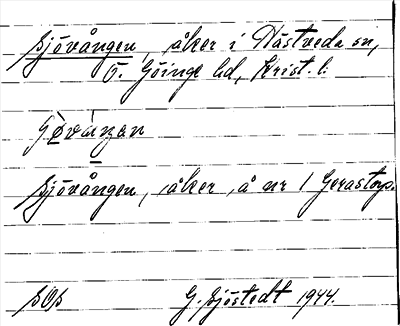 Sjövången, åker i Hästveda sn,
Ö. Göinge hd, Krist. l.
Sjövången, åker, å nr 1 Gerastorp.
SOS G. Sjöstedt 1944.